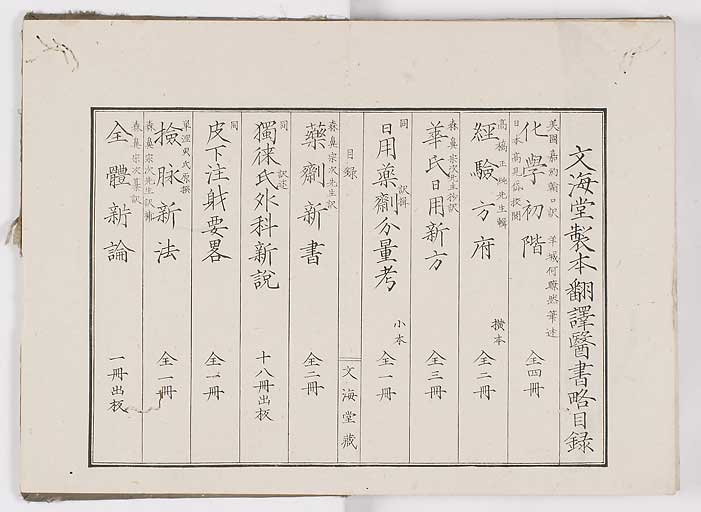 文海堂製本翻譯醫書略目錄
美國嘉約翰口訳 羊城何瞭然筆述
日本高見岱校閲
化學初階 全四冊
高橋正純先生輯
經驗方府 橫本 全二冊
森鼻宗次先生抄訳
華氏日用新方 全三冊
同 訳輯
日用藥劑分量考 小本 全一冊
目録 文海堂藏
森鼻宗次先生訳
藥劑新書 全二冊
同 訳述
獨徠氏外科新說 十八冊出板
同
皮下注射要畧 全一冊
氏原撰
森鼻宗次先生訳
撿脉新法 全一冊
森鼻宗次纂訳
全體新論 一冊出板